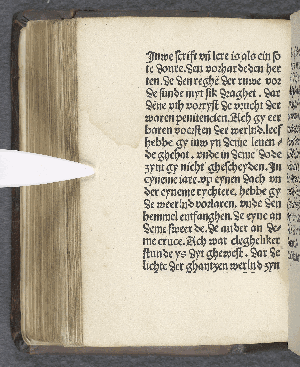 Juwe scrift vñ lere is als ein so
te douwe. den vorhardeden her
ten. de den reghē der ruwe vor
de sunde myt sik draghet. dar
dēne vth vorryst de vrucht der
waren penitencien. Ach gy eer
baren vorsten der werlnd. leef
hebbe gy iuw yn deme leuen
de ghehat. vnde in deme dode
zynt gy nicht ghescheyden. In
eyneme iare. vp eynen dach vn
der eyneme rychtere. hebbe gy
de werlnd vorlaren. vnde den
hemmel entfanghen. de eyne an
deme swerde. de ander an de
me cruce. Ach wat clegheliker
stunde ys dyt ghewest. dar de
lichte der ghantzen werlnd zyn